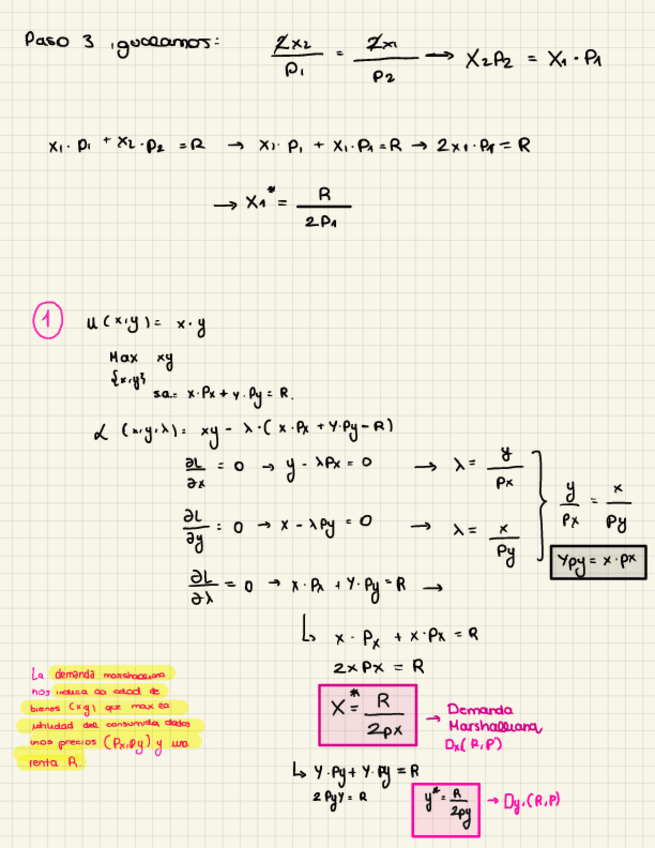 Paso 3 igualamos: 2x2/p1 = 2x1/p2 → x2p2 = x1·p1
x1·p1 + x2·p2 = R → x1·p1 + x1·p1 = R → 2x1·p1 = R
→ x1* = R/2p1
1 u(x,y) = x·y
Max xy
{x,y}
sa: x·Px + y·Py = R.
L (x,y,λ) = xy - λ·(x·Px + y·Py - R)
∂L/∂x = 0 → y - λPx = 0 → λ = y/Px
∂L/∂y = 0 → x - λPy = 0 → λ = x/Py
y/Px = x/Py
YPy = x·Px
∂L/∂λ = 0 → x·Px + y·Py = R →
↳ x·Px + x·Px = R
2xPx = R
x* = R/2px → Demanda
Marshalliana
Dx(R,P)
↳ y·Py + y·Py = R
2Pyy = R
y* = R/2py → Dy,(R,P)
La demanda marshalliana
nos indica la cdad de
bienes (x,y) que max la
utilidad del consumidor dados
unos precios (Px,Py) y una
renta R.